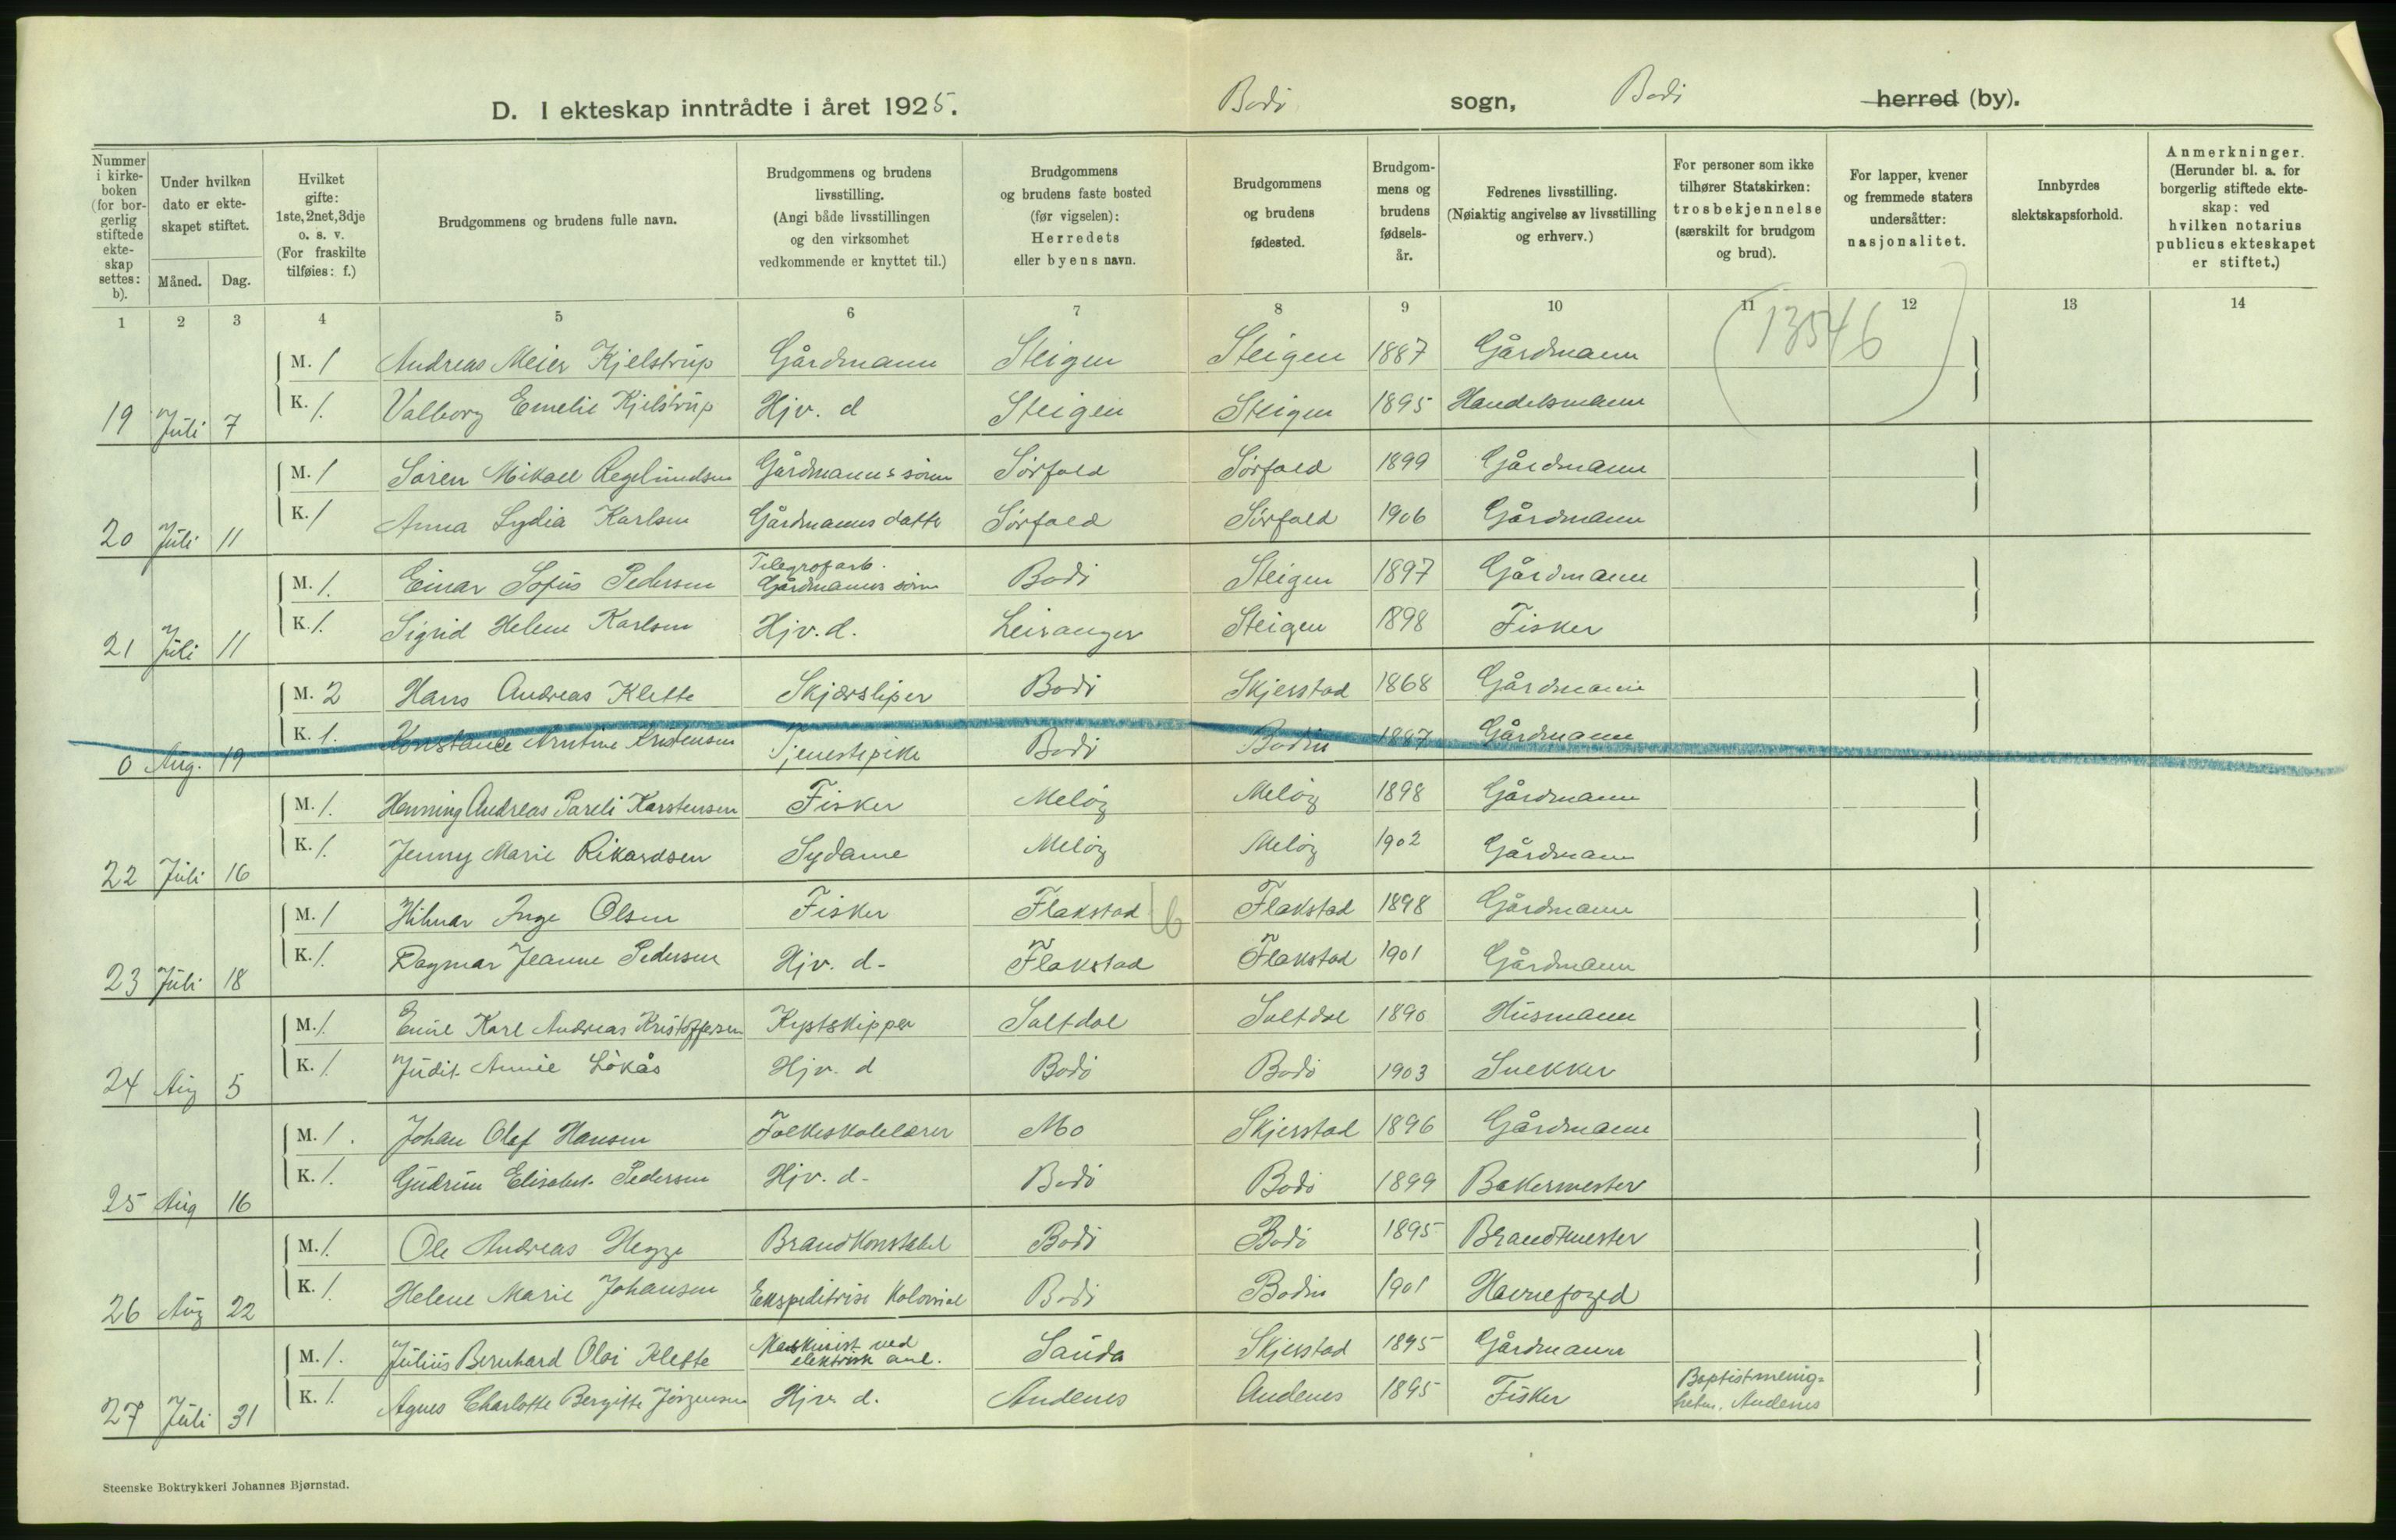 D. I ekteskap inntrådte i året 1925. Bodø sogn, Bodø herred (by).
Nummer i kirkeboken (for borgerlig stiftede ekteskap settes: b).
Under hvilken dato er ekteskapet stiftet.
Måned. Dag.
Hvilket gifte: 1ste, 2net, 3dje o. s. v. (For fraskilte tilføies: f.)
Brudgommens og brudens fulle navn.
Brudgommens og brudens livsstilling. (Angi både livsstillingen og den virksomhet vedkommende er knyttet til.)
Brudgommens og brudens faste bosted (før vigselen): Herredets eller byens navn.
Brudgommens og brudens fødested.
Brudgommens og brudens fødselsår.
Fedrenes livsstilling. (Nøiaktig angivelse av livsstilling og erhverv.)
For personer som ikke tilhører Statskirken: trosbekjennelse (særskilt for brudgom og brud).
For lapper, kvener og fremmede staters undersåtter: nasjonalitet.
Innbyrdes slektskapsforhold.
Anmerkninger. (Herunder bl. a. for borgerlig stiftede ekteskap: ved hvilken notarius publicus ekteskapet er stiftet.)
1 2 3 4 5 6 7 8 9 10 11 12 13 14
(13546)
M. 1 Andreas Meier Kjelstrup Gårdmann Steigen Steigen 1887 Gårdmann
19 Juli 7 K. 1. Valborg Emelie Kjelstrup Hjv. d Steigen Steigen 1895 Handelsmann
M. 1 Søren Mikael Regelundsen Gårdmanns sønn Sørfold Sørfold 1899 Gårdmann
20 Juli 11 K. 1 Anna Lydia Karlsen Gårdmanns datte Sørfold Sørfold 1906 Gårdmann
M. 1. Einar Sofus Pedersen Telegrafarb. Gårdmanns sønn Bodø Steigen 1897 Gårdmann
21 Juli 11 K. 1. Sigrid Helene Karlsen Hjv. d. Leiranger Steigen 1898 Fisker
M. 2 Hans Andreas Klette Skjærsliper Bodø Skjerstad 1868 Gårdmann
0 Aug. 19 K. 1. Konstance Kristensen Tjenestepike Bodø Bodin 1887 Gårdmann
M. 1. Henning Andreas Pareli Karstensen Fisker Meløy Meløy 1898 Gårdmann
22 Juli 16 K. 1. Jenny Marie Rikardsen Sydame Meløy Meløy 1902 Gårdmann
M. 1 Hilmar Inge Olsen Fisker Flakstad 6 Flakstad 1898 Gårdmann
23 Juli 18 K. 1. Dagmar Jeanne Pedersen Hjv. d. Flakstad Flakstad 1901 Gårdmann
M. 1. Emil Karl Andreas Kristoffersen Kystskipper Saltdal Saltdal 1890 Husmann
24 Aug 5 K. 1. Judit Annie Løkås Hjv. d Bodø Bodø 1903 Snekker
M. 1. Johan Olaf Hansen Folkeskolelærer Mo Skjerstad 1896 Gårdmann
25 Aug 16 K. 1. Gudrun Elisabet Pedersen Hjv. d. Bodø Bodø 1899 Bakermester
M. 1. Ole Andreas Hegge Brandkonstabel Bodø Bodø 1895 Brandmester
26 Aug 22 K. 1. Helene Marie Johansen Ekspeditrise Kolonial Bodø Bodin 1901 Havnefoged
M. 1. Julius Bernhard Olai Klette Maskinist ved elektrisk anl. Sauda Skjerstad 1895 Gårdmann
27 Juli 31 K. 1. Agnes Charlotte Bergitte Jørgensen Hjv. d. Andenes Andenes 1895 Fisker Baptistmenigheten. Andenes
Steenske Boktrykkeri Johannes Bjørnstad.